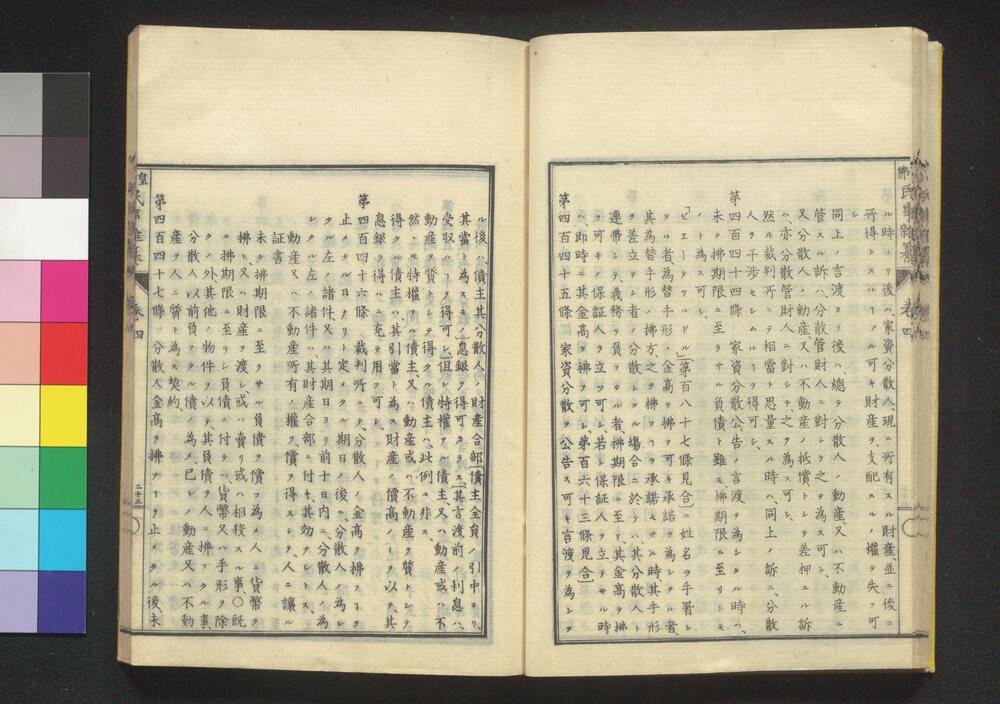 ル時ヨリ後ハ家資分散人、現ニ所有スル財産並ニ後ニ
所得トスルヿノ有ル可キ財産ヲ、支配スルノ權ヲ失フ可
シ
同上ノ言渡ヨリ後ハ、總テ分散人ノ動産又ハ不動産ニ
管スル訴ハ分散管財人ニ對シ之ヲ為ス可シ、
又分散人ノ動産又ハ不動産ノ抵償トシテ差押エル訴
ハ、亦分散管財人ニ對シテ、之ヲ為ス可シ、
然ㇾ𪜈裁判所ニテ相當ト思量スル時ハ、同上ノ訴ニ、分散
人ヲ干渉セシムルヿヲ得可シ、
第四百四十四條　家資分散公告ノ言渡ヲ為シタル時ハ、
未タ拂期限ニ至ラサル負債ト雖モ拂期限ニ至リシモ
ノト為ス可シ、
「ビエーアヲルドル」（第百八十七條見合）ニ姓名ヲ手署シ
タル者、為替手形ノ金高ヲ拂フ可キ承諾ヲ為シタル者、
其為替手形ノ拂方、之ヲ拂フヿヲ承諾セサル時、其手形
ヲ差立テシ者ノ分散シタル場合ニ於テハ其分散人ト
連帶シテ義務ヲ負フタル者、拂期限ニ至リ、其金高ヲ拂
フ可キノ保証人ヲ立ツ可シ、若シ保証人ヲ立テサル時
ハ即時ニ其金高ヲ拂フ可シ、（第百六十三條見合）
第四百四十五條　家資分散ヲ公告ス可キ言渡ヲ為シタ
ル後ハ債主其分散人ノ財産合部（債主全員ノ引中ヨリ、
其當ト為スモノ）息銀ヲ得可カラス、其言渡前ノ利息ハ、
受取ルヿヲ得可シ、但シ特權アル債主又ハ動産或ハ不
動産ヲ質トシテ得タル債主ハ、此例ニ非ス、
然ㇾ𪜈特權アル債主、又ハ動産或ハ不動産ヲ質トシテ
得タル債主ハ、其引當ト為ス財産ノ價高ノミヲ以テ、其
息銀ヲ得ルニ充テ用フ可シ、
第四百四十六條　裁判所ニテ分散人ノ金高ヲ拂フヿヲ
止メタル日ナリト定メタル期日ノ後ニ、分散人ノ為シ
タル左ノ諸件又ハ其期日ヨリ前十日内ニ、分散人ノ為
シタル左ノ諸件ハ、其財産合部ニ付キ、其効ナシトス、
動産又ハ不動産所有ノ權ヲ償ヲ得スシテ、人ニ讓ル
証書
未タ拂期限ニ至ラサル負債ヲ償フ為メ人ニ貨幣ヲ
拂ヒ、又ハ財産ヲ渡シ或ハ賣リ或ハ相殺スル事、○既
ニ拂期限ニ至リシ負債ニ付テハ、貨幣又ハ手形ヲ除
クノ外、其他ノ物件ヲ以テ、其負債ヲ人ニ拂フタル事、
分散人以前負フタル債ノ為メ已レノ動産又ハ不動
産ヲ人ニ質ト為ス契約、
第四百四十七條　分散人金高ヲ拂フヿヲ止メタル後、未
卷四
二十三